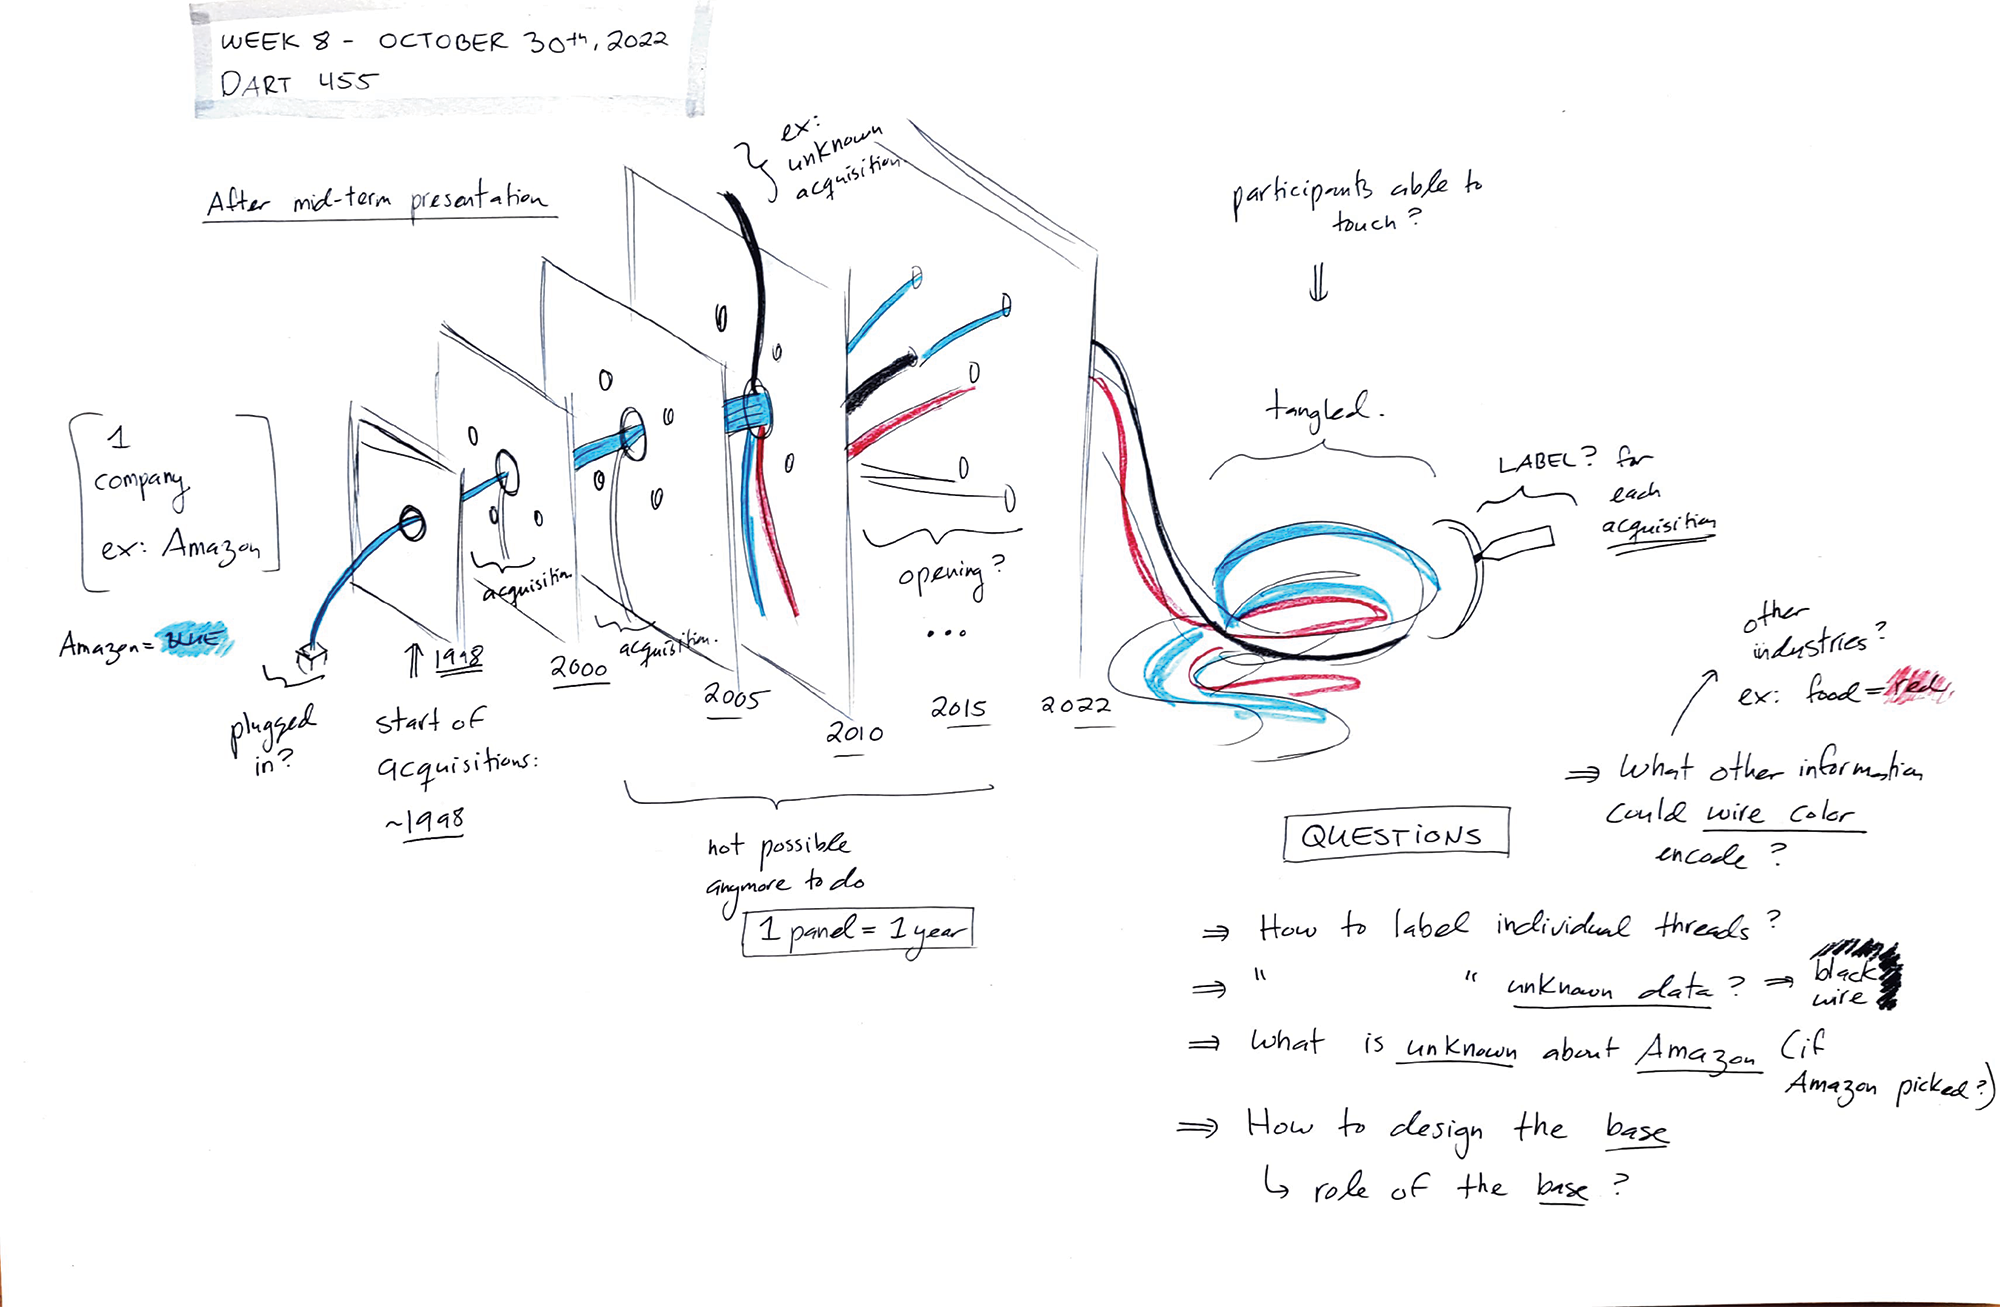 WEEK 8 - OCTOBER 30th, 2022
DART 455
After mid-term presentation
ex:
unknown
acquisition.
participants able to
touch?
tangled.
LABEL? for
each
acquisition
1
company
ex: Amazon
Amazon = BLUE
plugged
in?
1998
start of
acquisitions:
~1998
acquisition
2000
acquisition.
2005
2010
opening?
...
2015
2022
not possible
anymore to do
1 panel = 1 year
other
industries?
ex: food = red.
⇒ What other information
could wire color
encode?
QUESTIONS
⇒ How to label individual threads?
⇒ " " unknown data? ⇒ black
wire
⇒ What is unknown about Amazon (if
Amazon picked?)
⇒ How to design the base
↳ role of the base?